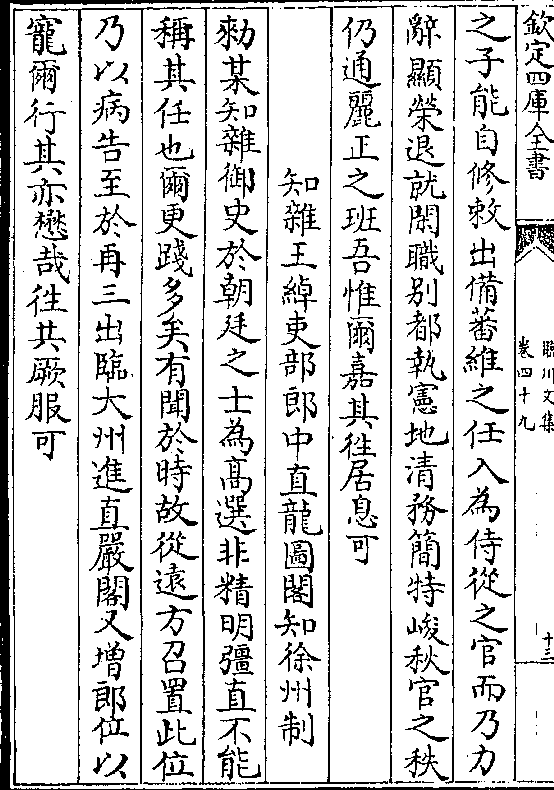 欽定四庫全書
臨川文集
卷四十九
十三
之子能自修敕出備蕃維之任入為侍從之官而乃力
辭顯榮退就閑職别都執憲地清務簡特峻秋官之秩
仍通麗正之班吾惟爾嘉其往居息可
知雜王綽吏部郎中直龍圖閣知徐州制
勑某知雜御史於朝廷之士為髙選非精明彊直不能
稱其任也爾更踐多矣有聞於時故從遠方召置此位
乃以病告至於再三出臨大州進直嚴閣又增郎位以
寵爾行其亦懋哉往共厥服可